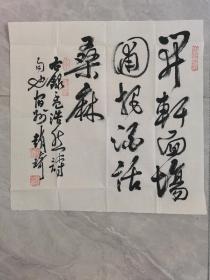 開軒面場
圃把酒話
桑麻
右錄孟浩然詩
句